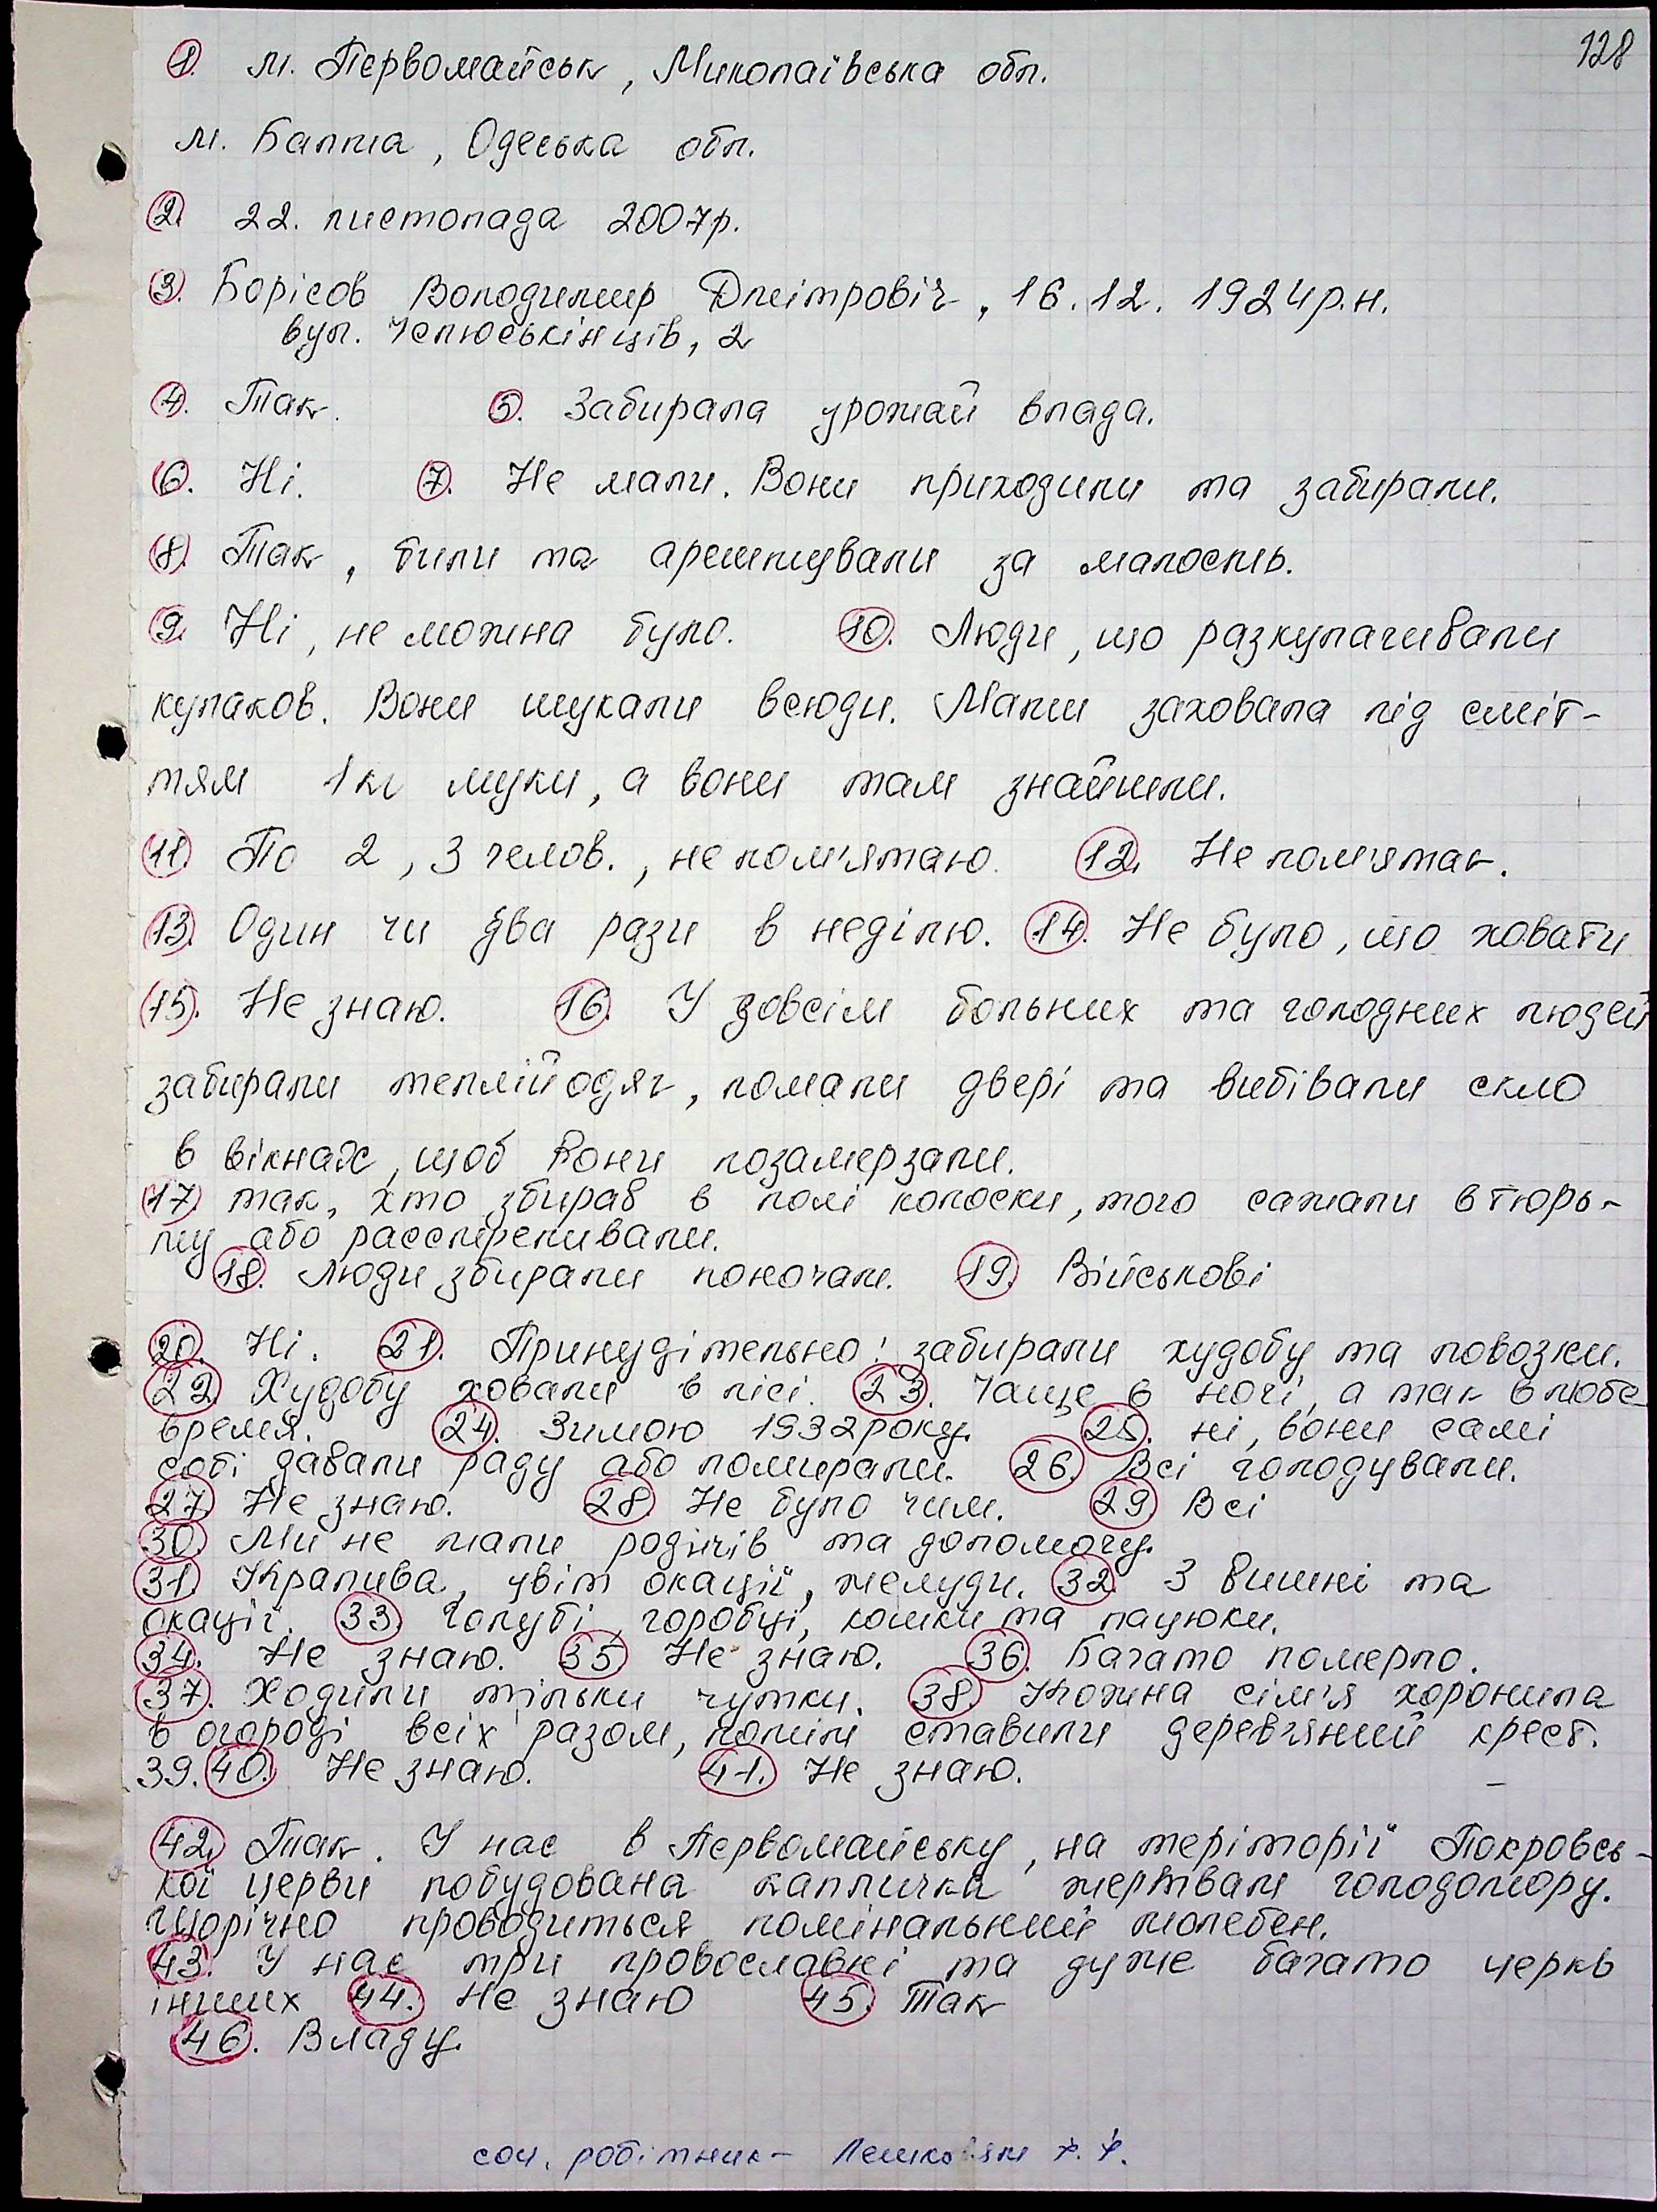 128
1. м. Первомайськ, Миколаївська обл.
м. Балта, Одеська обл.
2. 22. листопада 2007р.
3. Борісов Володимир Дмітровіч, 16.12. 1924р.н.
вул. Челюськінців, 2
4. Так. 5. Забирала урожай влада.
6. Ні. 7. Не мали. Вони приходили та забирали.
8. Так, били та арештували за малость.
9. Ні, не можна було. 10. Люди, що разкулачивали
кулаков. Вони шукали всюди. Мати заховала під сміт-
тям 1кг муки, а вони там знайшли.
11. По 2, 3 челов., не пом'ятаю. 12. Не пом'ятаю.
13. Один чи два рази в неділю. 14. Не було, що ховати
15. Не знаю. 16. У зовсім больних та голодних людей
забирали теплий одяг, ломали двері та вибівали скло
в вікнах, щоб вони позамерзали.
17. так, хто збирав в полі колоски, того сажали в тюрь-
му або расстрелювали.
18. Люди збирали поночам. 19. Військові
20. Ні. 21. Принудітельно: забирали худобу та повозки.
22. Худобу ховали в лісі. 23. Чаще в ночі, а так в любе
время. 24. Зимою 1932року. 25. ні, вони самі
собі давали раду або помирали. 26. Всі голодували.
27. Не знаю. 28. Не було чим. 29. Всі
30. Ми не мали родичів та допомогу.
31. Крапива, цвіт окації, желуди. 32. З вишні та
окації. 33. Голубі, горобці, кошки та пацюки.
34. Не знаю. 35 Не знаю. 36. Багато померло.
37. Ходили тільки чутки. 38. Кожна сім'я хоронила
в огороді всіх разом, потім ставили дерев'яний крест.
39. 40. Не знаю. 41. Не знаю.
42. Так. У нас в Первомайську, на теріторії Покровсь-
кої церви побудована капличка жертвам голодомору.
Щорічно проводиться помінальний молебен.
43. У нас три провославні та дуже багато церкв
інших 44. Не знаю 45. Так
46. Владу.
соц. робітник –